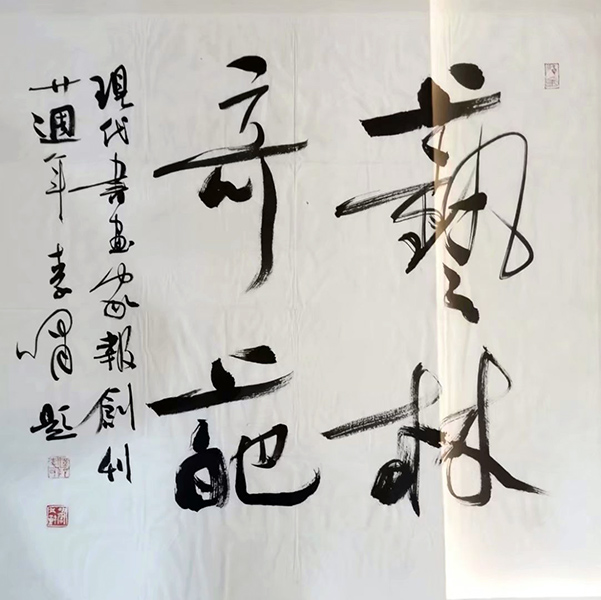 藝林
奇葩
現代書畫家報創刊
廿週年 李嘯 題